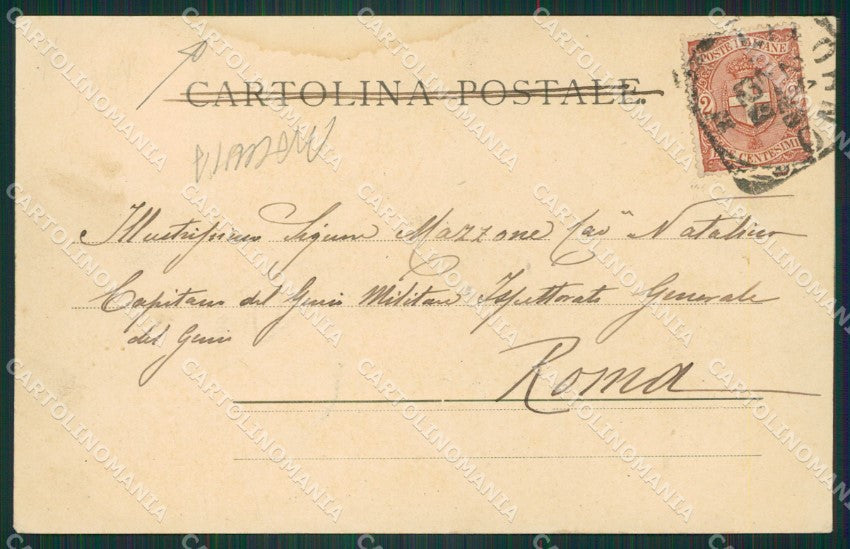 CARTOLINA POSTALE.
POSTE ITALIANE
2
CENTESIMI
MACCHIA
Illustrissimo Signore Mazzone Cav.r Natalino
Capitano del Genio Militare Ispettorato Generale
del Genio
Roma
CARTOLINOMANIA